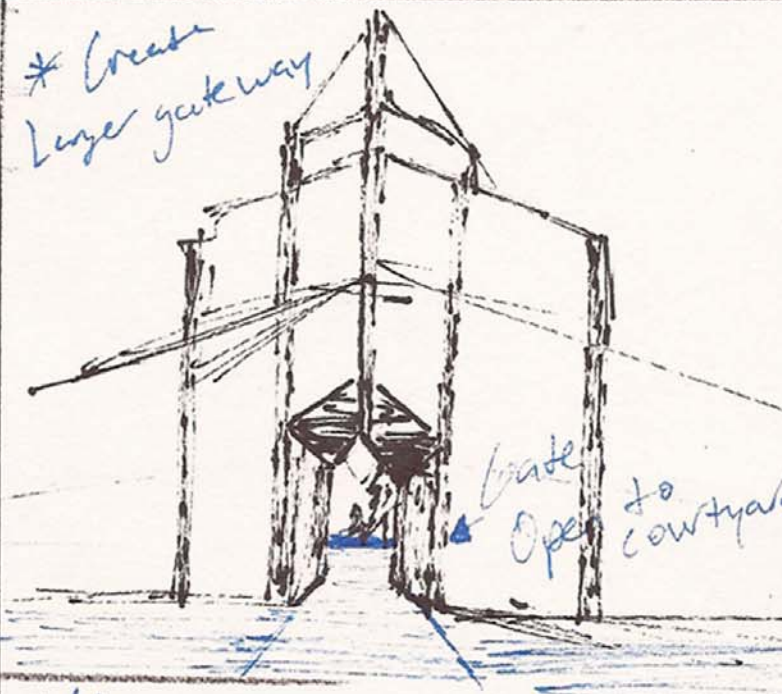 * Create
Larger gateway
Gate
Open to
courtyar